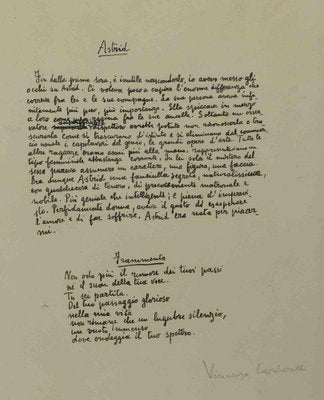 Astrid
Fin dalla prima sera, è inutile nasconderlo, io avevo messo gli
occhi su Astrid. Ci voleva poco a capire l'enorme differenza che
correva fra lei e le sue compagne. La sua persona aveva
infinitamente più peso, più importanza. Ella spiccava in mezzo
a loro come una regina fra le sue ancelle. Soltanto un osser-
vatore
scuravole come si trascurano d'istinto e si eliminano dal commer-
cio usuale i capolavori del genio, le grandi opere d'arte. Tutte le
altre ragazze erano assai più alla mano, rappresentavano un
tipo femminile abbastanza corrente. In lei sola il mistero del
sesso pareva assumere un carattere, una figura, una faccia.
Era dunque Astrid una fanciulla segreta, naturalissima,
con qualcosa di tenero, di precocemente materno e
nobile. Più geniale che intelligente; e piena d'imprevi-
sto. Perfidamente donna, aveva il gusto di esasperare
l'amore e di far soffrire. Astrid era nata per piacer-
mi.
Frammento
Non odo più il rumore dei tuoi passi
né il suon della tua voce.
Tu sei partita.
Del tuo passaggio glorioso
nella mia vita
non rimane che un lugubre silenzio,
un vuoto immenso
dove ondeggia il tuo spettro.
Vincenzo Cardarelli